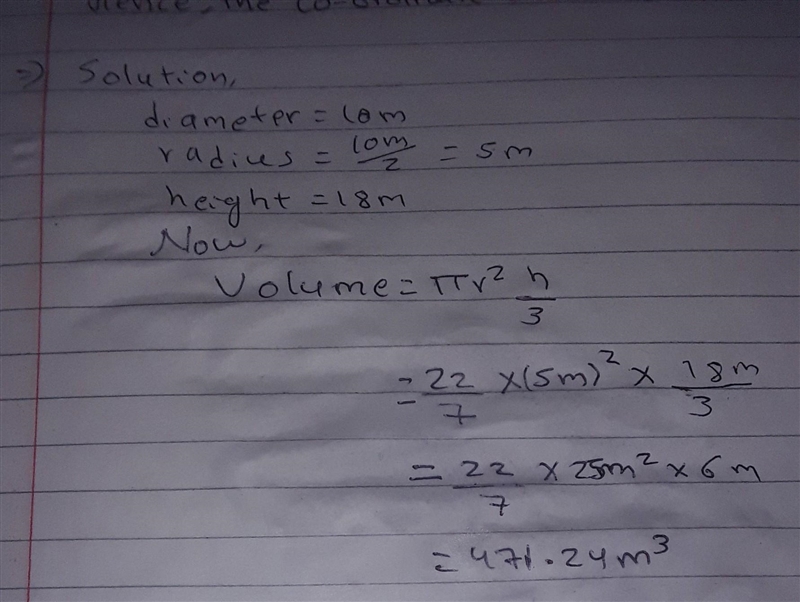 Hence, the co-ordinate
=> Solution,
diameter = 10m
radius = 10m/2 = 5m
height = 18m
Now,
Volume = πr² h/3
= 22/7 × (5m)² × 18m/3
= 22/7 × 25m² × 6m
= 471.24m³